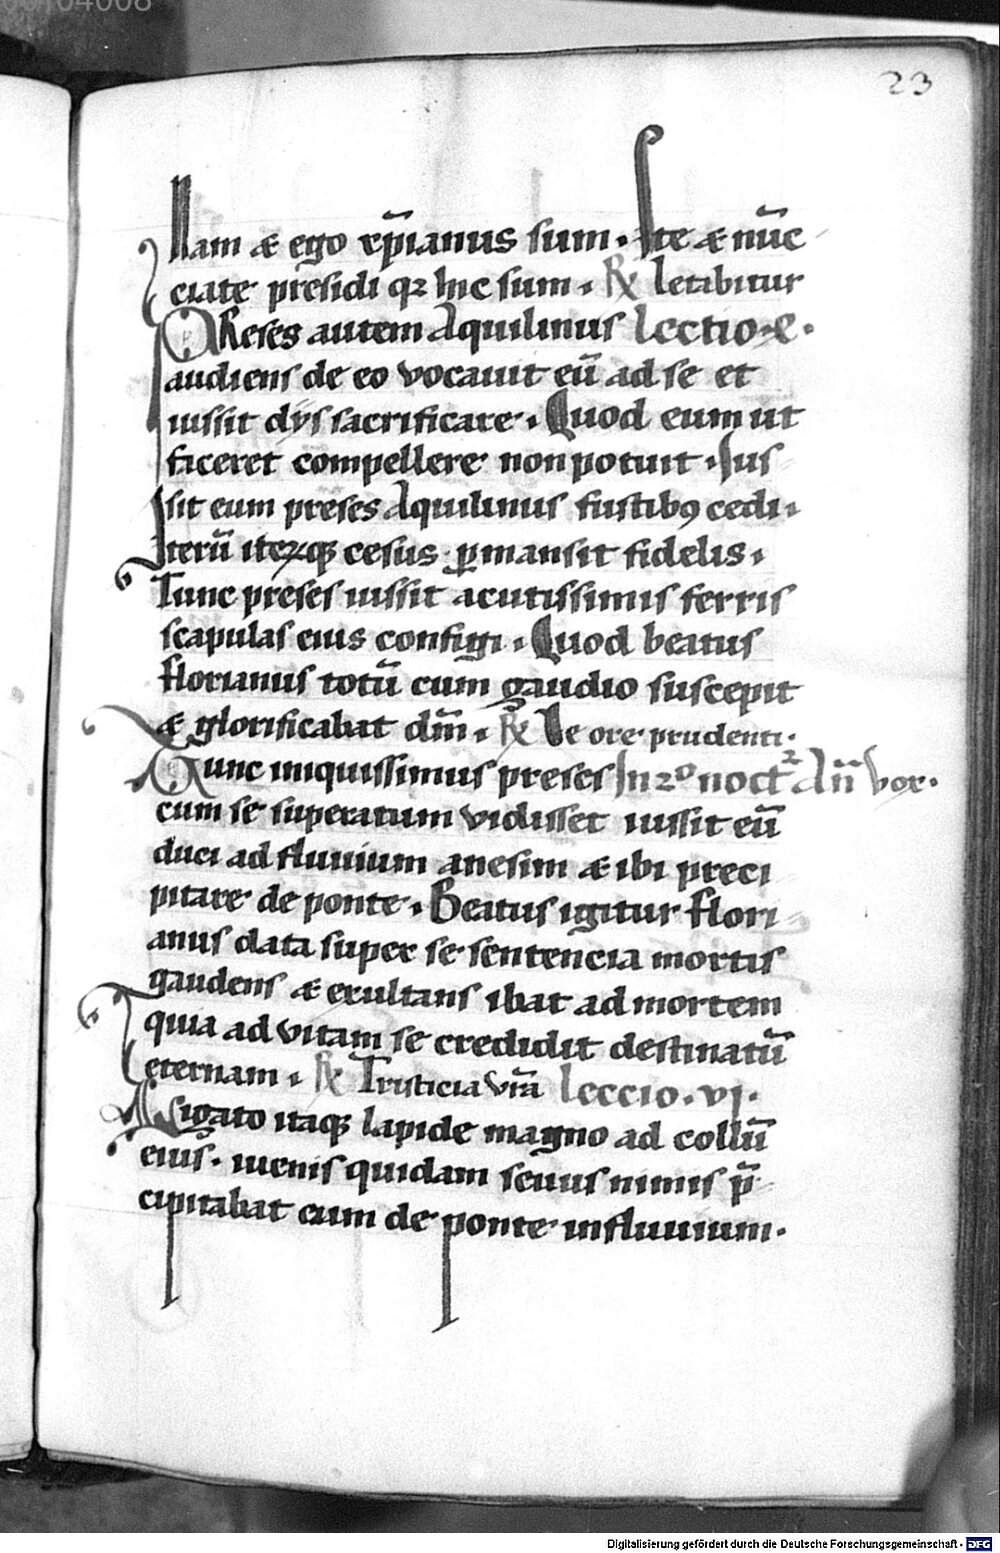 23
Nam & ego xp̄ianus sum. Ite & nūc
ciate presidi qꝛ hic sum. ℟ letabitur
PReses autem Aquilinus Lectio
audiens de eo vocauit eū ad se et
iussit dijs sacrificare. Quod eum ut
faceret compellere non potuit. Jus
sit eum preses Aquilinus fustibꝯ cedi.
Iterū iteꝝqꝫ cesus ꝑmansit fidelis.
Tunc preses iussit acutissimis ferris
scapulas eius configi. Quod beatus
florianus totū cum gaudio suscepit
& glorificabat dm̄. ℟ De ore prudenti.
Tunc iniquissimus preses In 2º noct᷑ An̄ Vox.
cum se superatum vidisset iussit eū
duci ad fluuium anesim & ibi preci
pitare de ponte. Beatus igitur flori
anus data super se sentencia mortis
gaudens & exultans ibat ad mortem
quia ad vitam se credidit destinatū
eternam. ℟ Tristicia vrā Leccio. vj.
Ligato itaqꝫ lapide magno ad collū
eius. iuenis quidam seuus nimis p̄
cipitabat eum de ponte in fluuium.
Digitalisierung gefördert durch die Deutsche Forschungsgemeinschaft - DFG